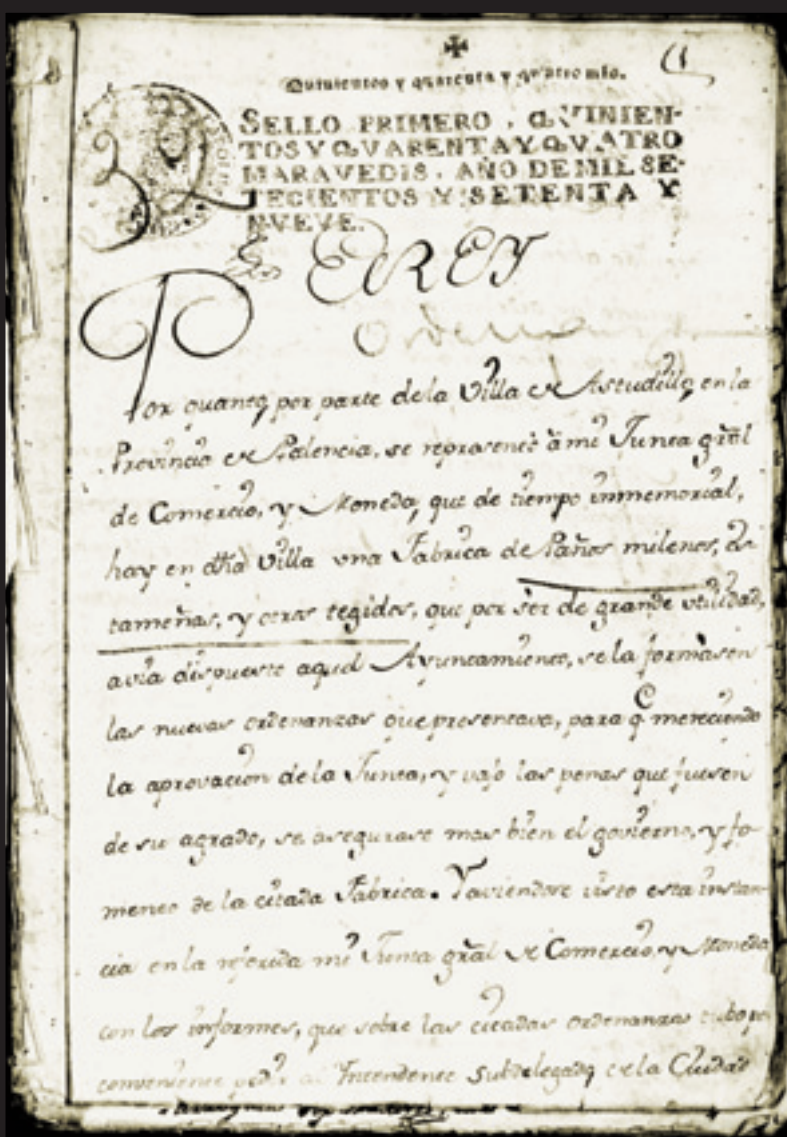 Quinientos y quarenta y quatro mrs.
SELLO PRIMERO, QVINIEN-
TOS Y QVARENTA Y QVATRO
MARAVEDIS, AÑO DE MIL SE-
TECIENTOS Y SETENTA Y
NVEVE.
El REY
Por quanto, por parte de la Villa de Astudillo, en la
Provincia de Palencia, se representó à mi Junta gral
de Comercio, y Moneda, que de tiempo immemorial,
hay en dha villa una Fabrica de Paños milenos, Es-
tameñas, y otros tegidos, que por ser de grande utilidad,
avia dispuesto aquel Ayuntamiento, se la formasen
las nuevas ordenanzas que presentava, para q mereciendo
la aprovacion de la Junta, y vajo las penas que fuesen
de su agrado, se asegurase mas bien el govierno, y fo-
mento de la citada Fabrica. Y aviendose visto esta instan-
cia en la referida mi Junta gral de Comercio, y Moneda
con los informes, que sobre las citadas ordenanzas tubo por
conveniente pedir al Intendente Subdelegado de la Ciudad